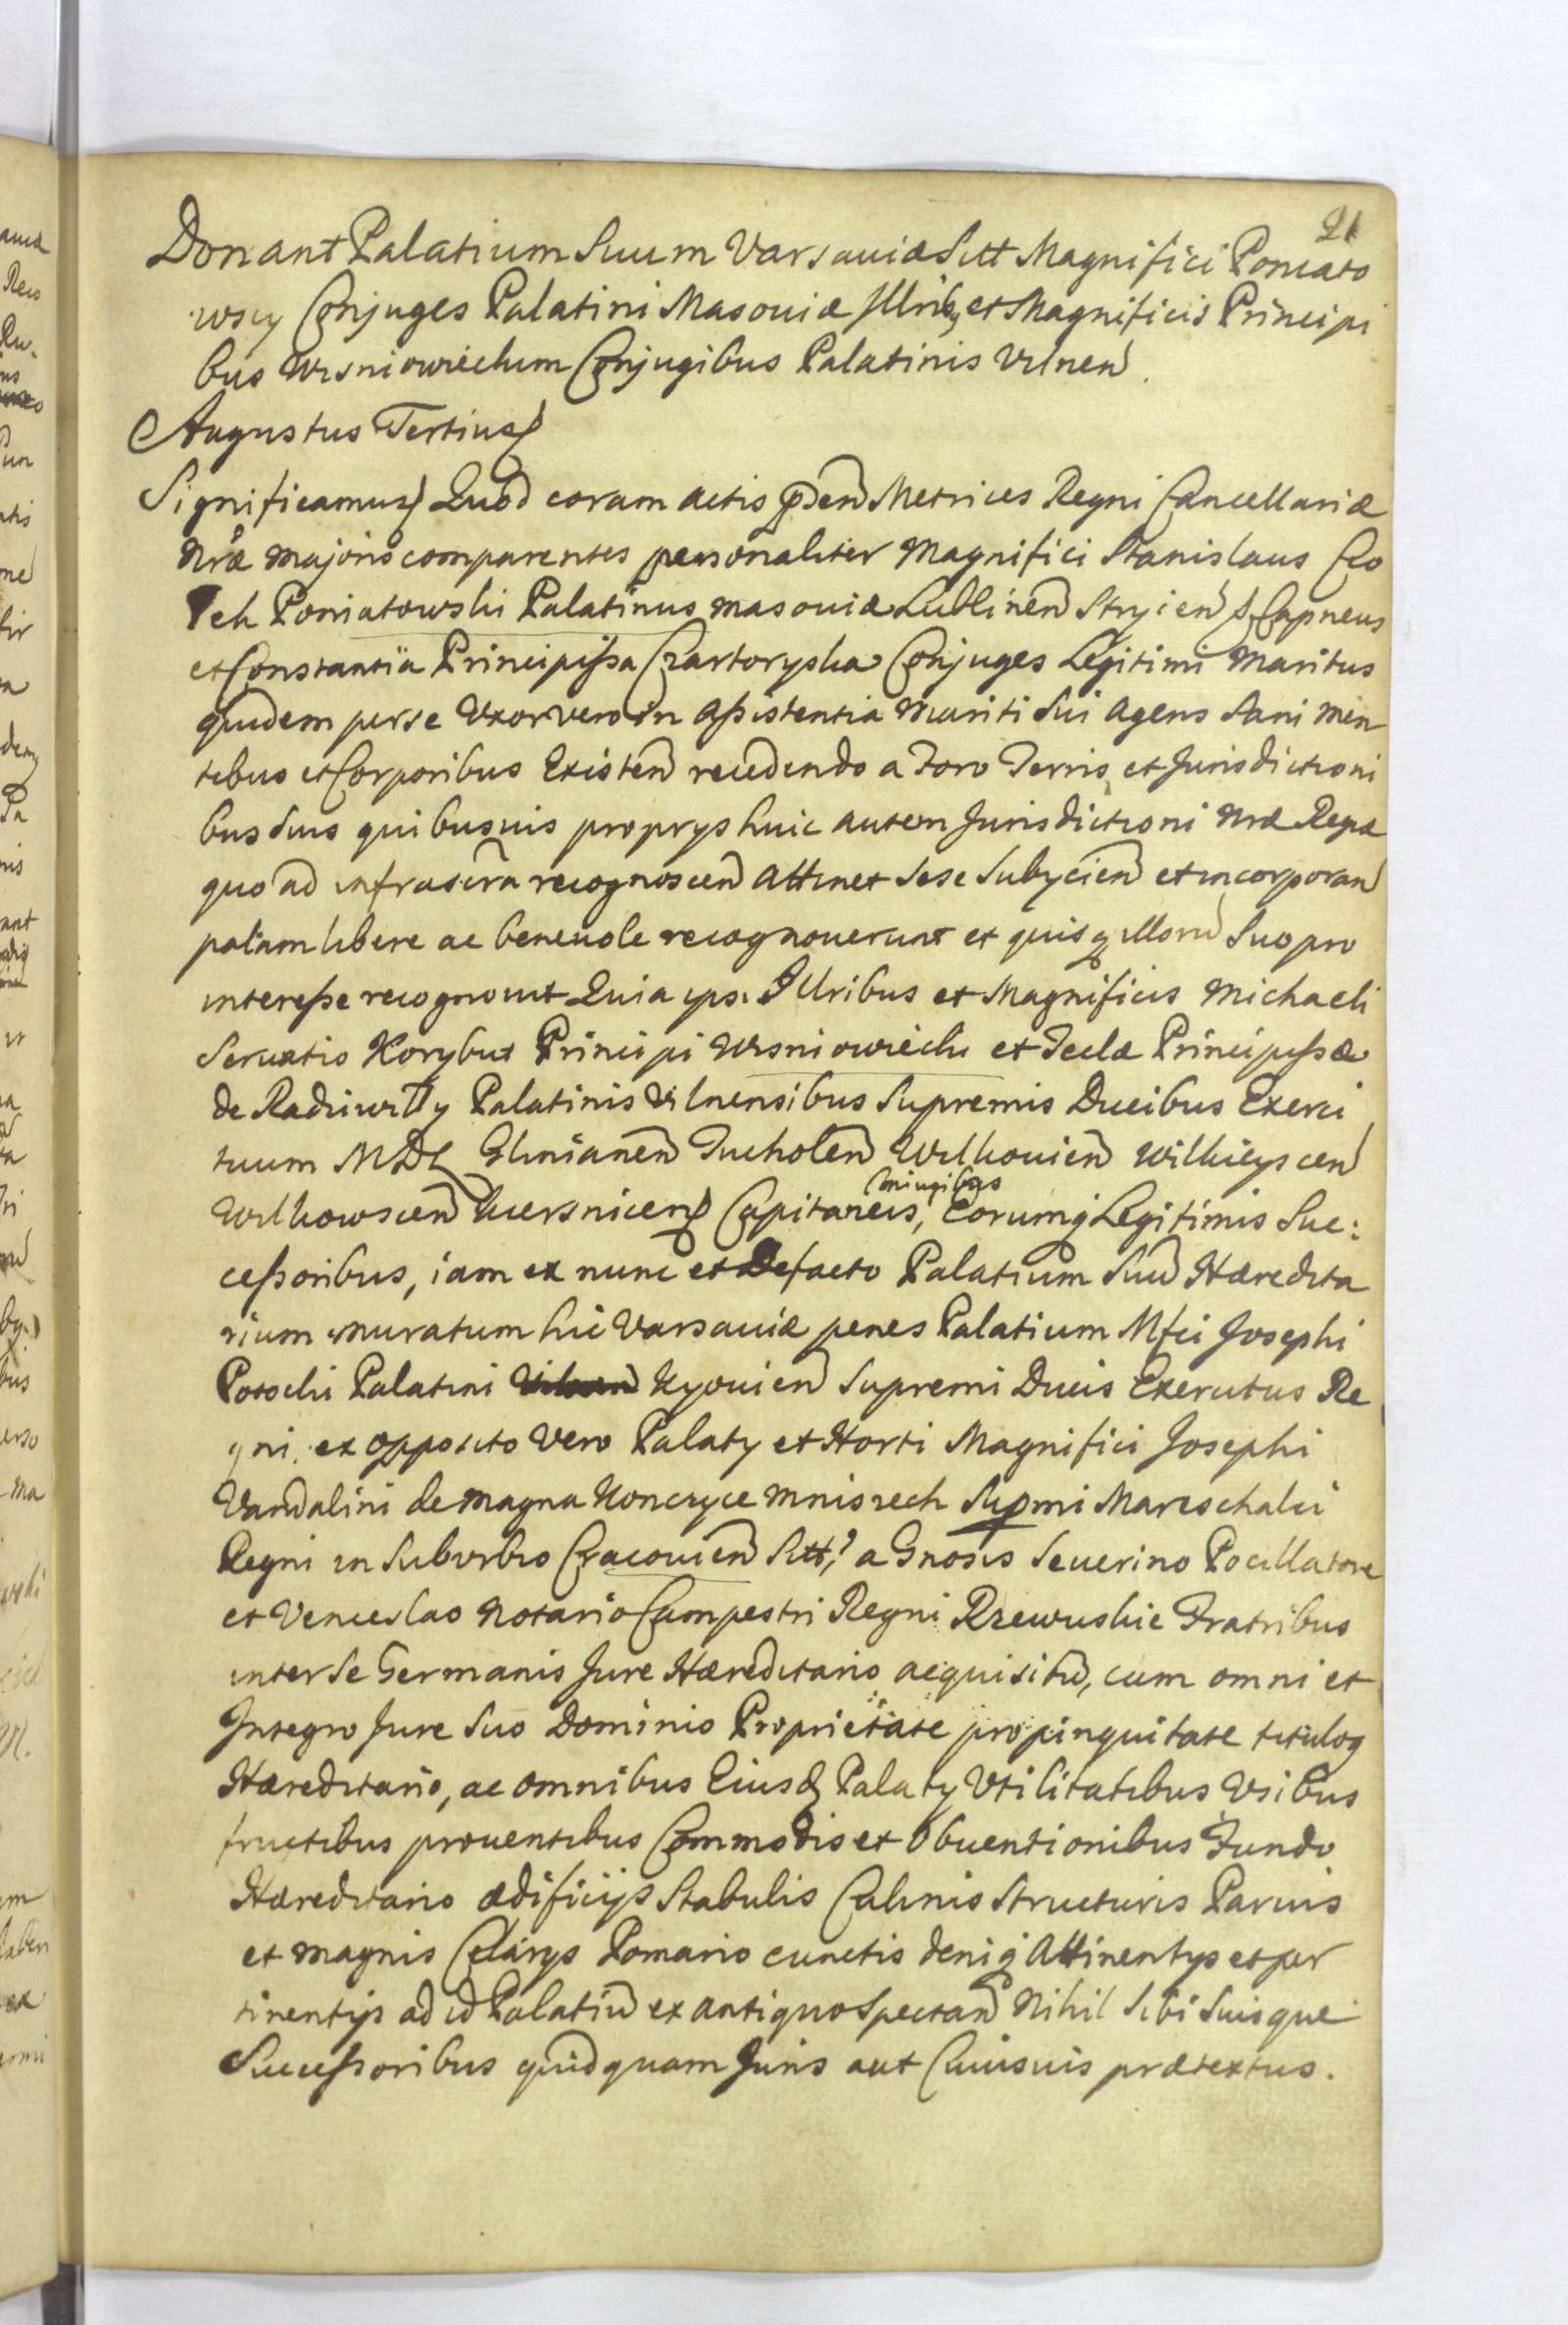 21
Donant Palatium Suum Varsaviæ Sitt Magnifici Poniato
wscy Conjuges Palatini Masoviæ Illribq et Magnificis Principi
bus Wisniowieckim Conjugibus Palatinis Vilnen
Augustus Tertius
Significamus Quod coram actis pnd Metrices Regni Cancellariæ
Nræ majoris comparentes personaliter Magnifici Stanislaus Cio
łek Poniatowski Palatinus masoviæ Lublinen Stryien Capneus
et Constantia Principissa Czartoryska Conjuges Legitimi maritus
quidem per se Uxor vero in assistentia mariti sui agens Sani men
tibus et Corporibus Existen recedendo a Foro Terris et Jurisdictioni
bus suis quibusvis proprys huic autem Jurisdictioni nræ Regiæ
quo ad infrascrn recognoscen attinet sese Subycien et incorporan
palam libere ac benevole recognoverunt et quisq illoru Suo pro
interesse recognovit Quia ipsi Illribus et Magnificis Michaeli
Servatio Korybut Principi Wisniowiecki et Teclæ Principissæ
de Radziwiłły Palatinis Vilnensibus Supremis Ducibus Exerci
tuum MDL Glinianen Tucholen Wilkovien Wilkieyscen
Wilkowscen Capitaneis, Conjugibus Eorumq Legitimis Suc:
cessoribus, iam ex nunc et De facto Palatium Suu Hæredita
rium muratum hic Varsaviæ penes Palatium Mfci Josephi
Potocki Palatini Kyovien Supremi Ducis Exercitus Re
gni ex opposito vero Palaty et Horti Magnifici Josephi
Vandalini de magna Konczyce mniszech Supmi Mareschalci
Regni in Suburbio Cracovien Sitt, a Gnosis Severino Pocillatore
et Venceslao Notario Campestri Regni Rzewuskie Fratribus
inter se Germanis Jure Hæreditario acquisitu, cum omni et
Integro Jure Suo Dominio Proprietate propinquitate tituloq
Hæreditario, ac omnibus Eiusd Palaty Utilitatibus Usibus
fructibus proventibus Commodis et Obventionibus Fundo
Hæreditario ædificijs Stabulis Culinis Structuris Parvis
et magnis Cellarys Pomario cunctis deniq attinentys et per
tinentijs ad id Palatiu ex antiquo Spectan Nihil Sibi Suisque
Successoribus quidquam Juris aut Cuiusvis prætextus.